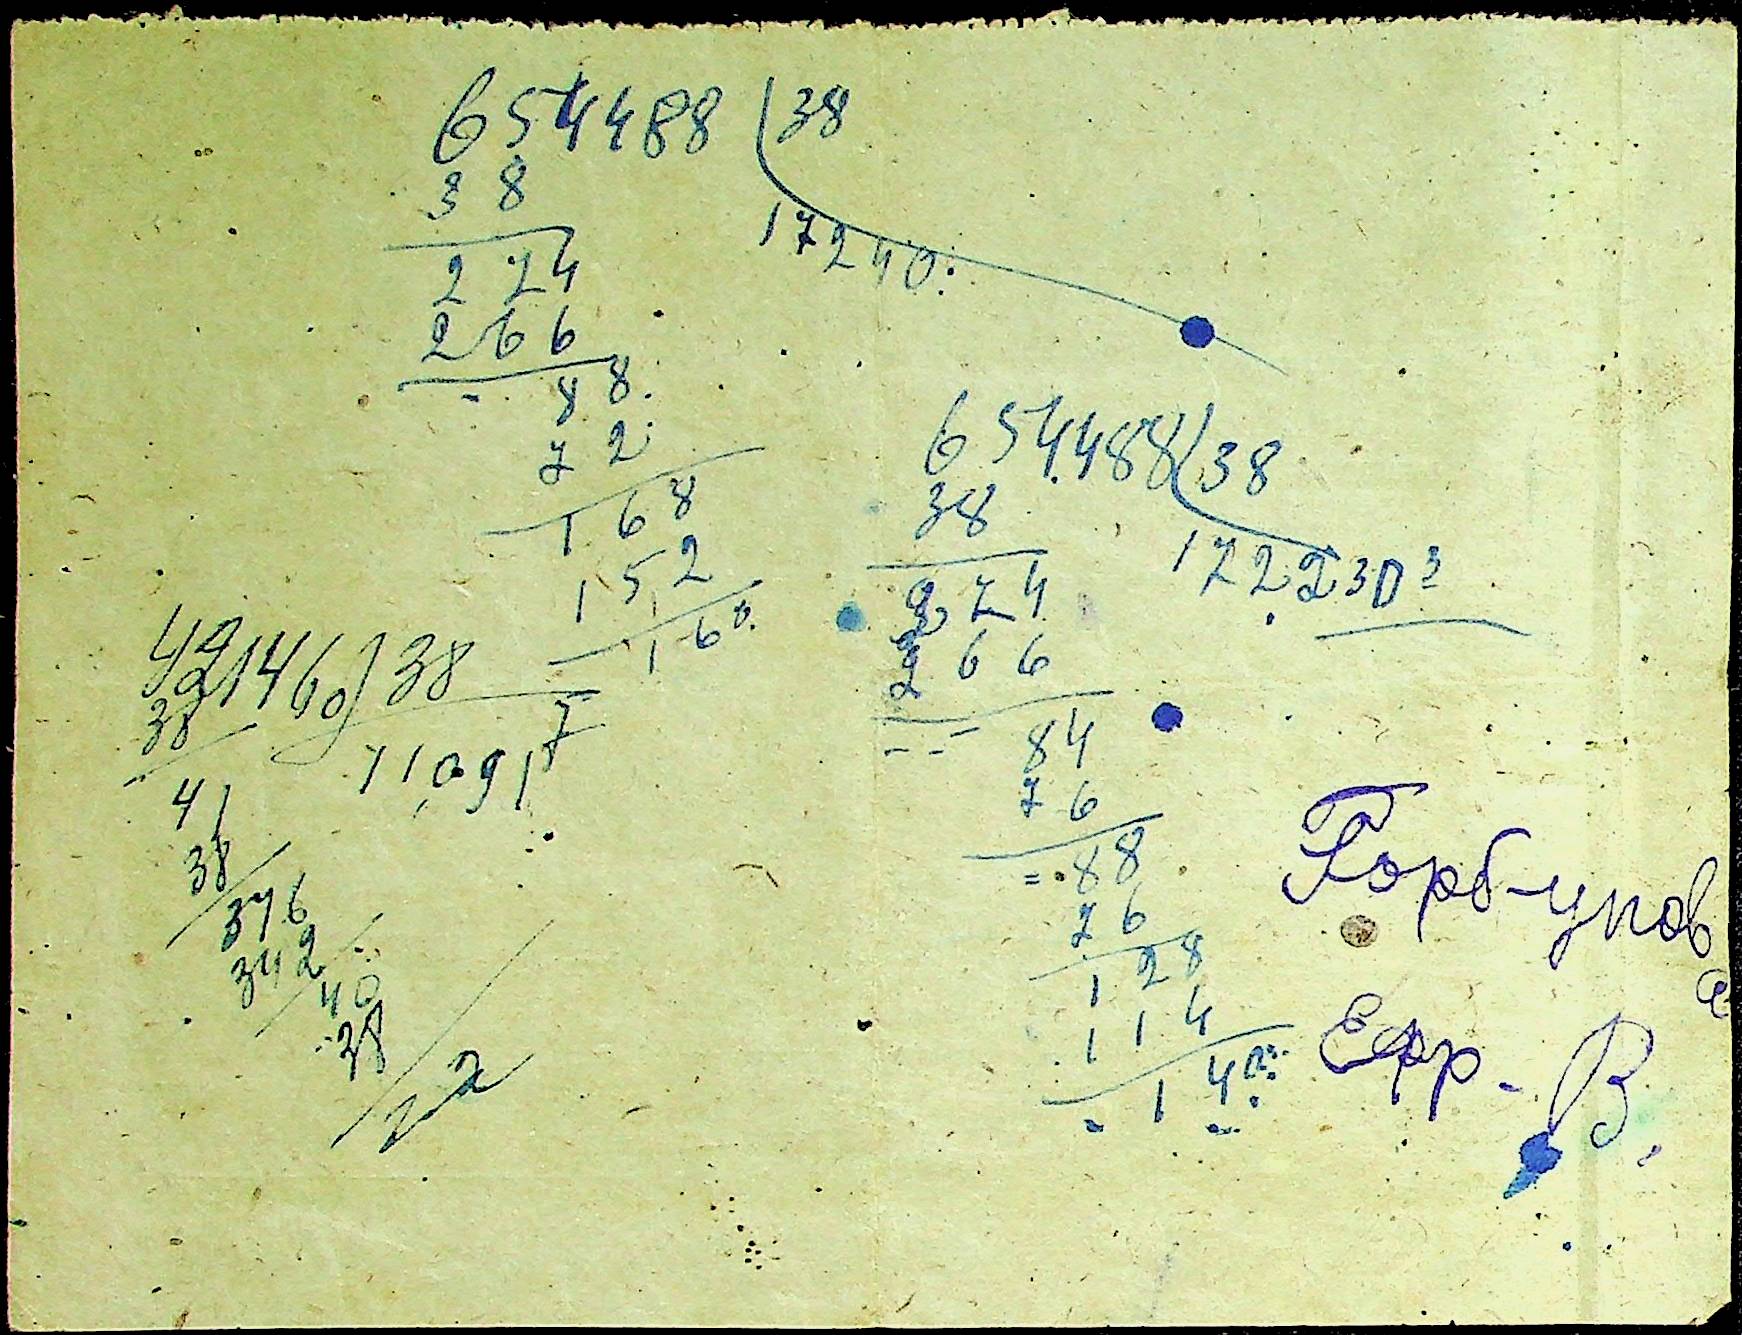 654488 38
38
17240
274
266
88
72
168
152
160
654488 38
38
172230
274
266
84
76
88
76
128
114
140
421460 38
38
11091
41
38
346
342
40
38
2
Горб-унов
а
Ефр. В.